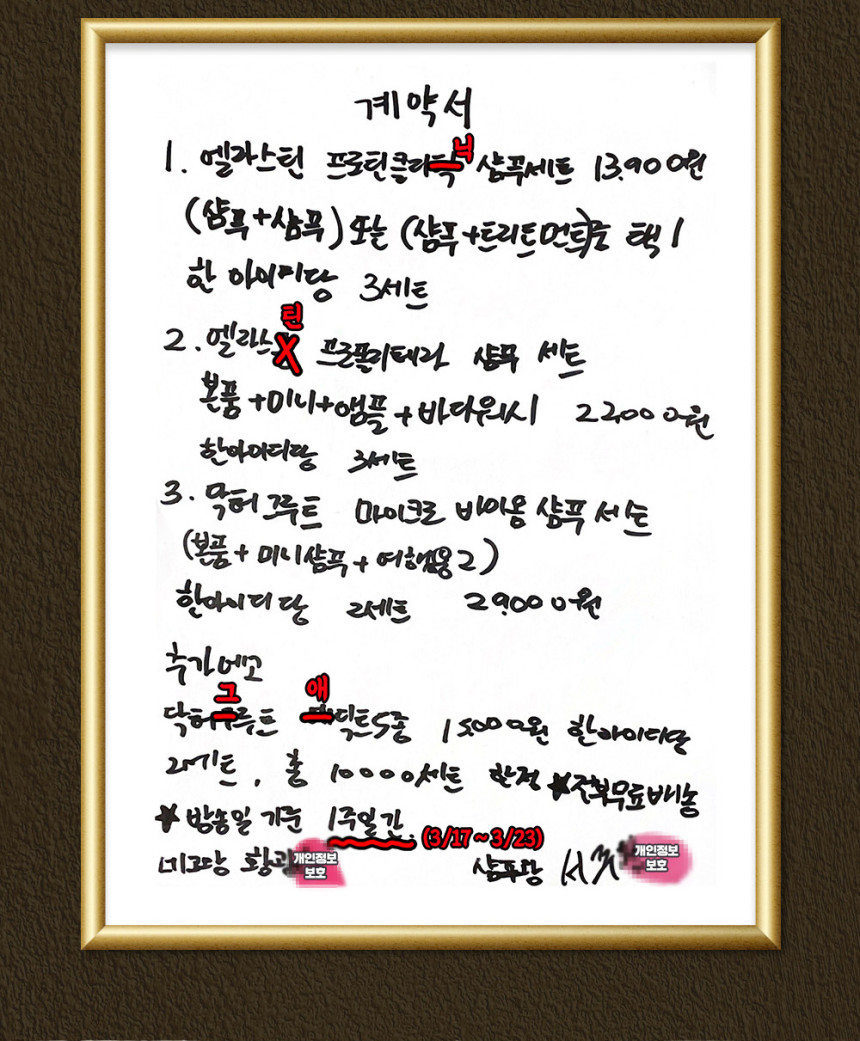 계약서
1. 엘라스틴 프로틴클리닉 샴푸세트 13,900원
(샴푸+샴푸) 또는 (샴푸+트리트먼트)중 택1
한 아이피당 3세트
틴
2. 엘라스 X 프로폴리테라 샴푸 세트
본품+미니+앰플+바디워시 22,000원
한아이디당 3세트
3. 닥터그루트 마이크로 바이옴 샴푸 세트
(본품+미니샴푸+여행용2)
한아이디당 2세트 29000원
추가메고
그 애
닥터 루트 딕트5종 15000원 한아이디당
2세트, 총 10000세트 한정 ★전복무료배송
★ 방송일 기준 1주일간. (3/17~3/23)
네고왕 황광 개인정보 보호 샴푸왕 개인정보 보호